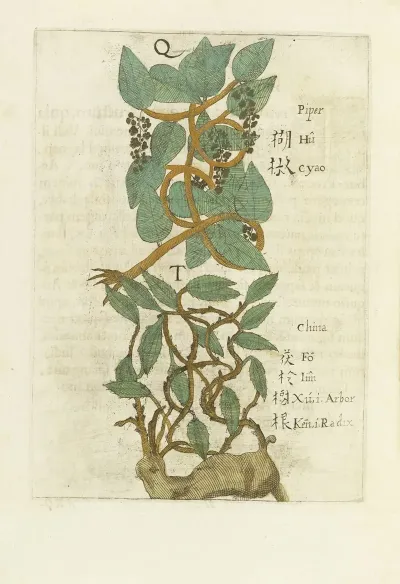 Q
Piper
楜 Hû
椒 Cyao
T
China
茯 Fŏ
Lîm
樹 Xú. i. Arbor
根 Kēn. i. Radix